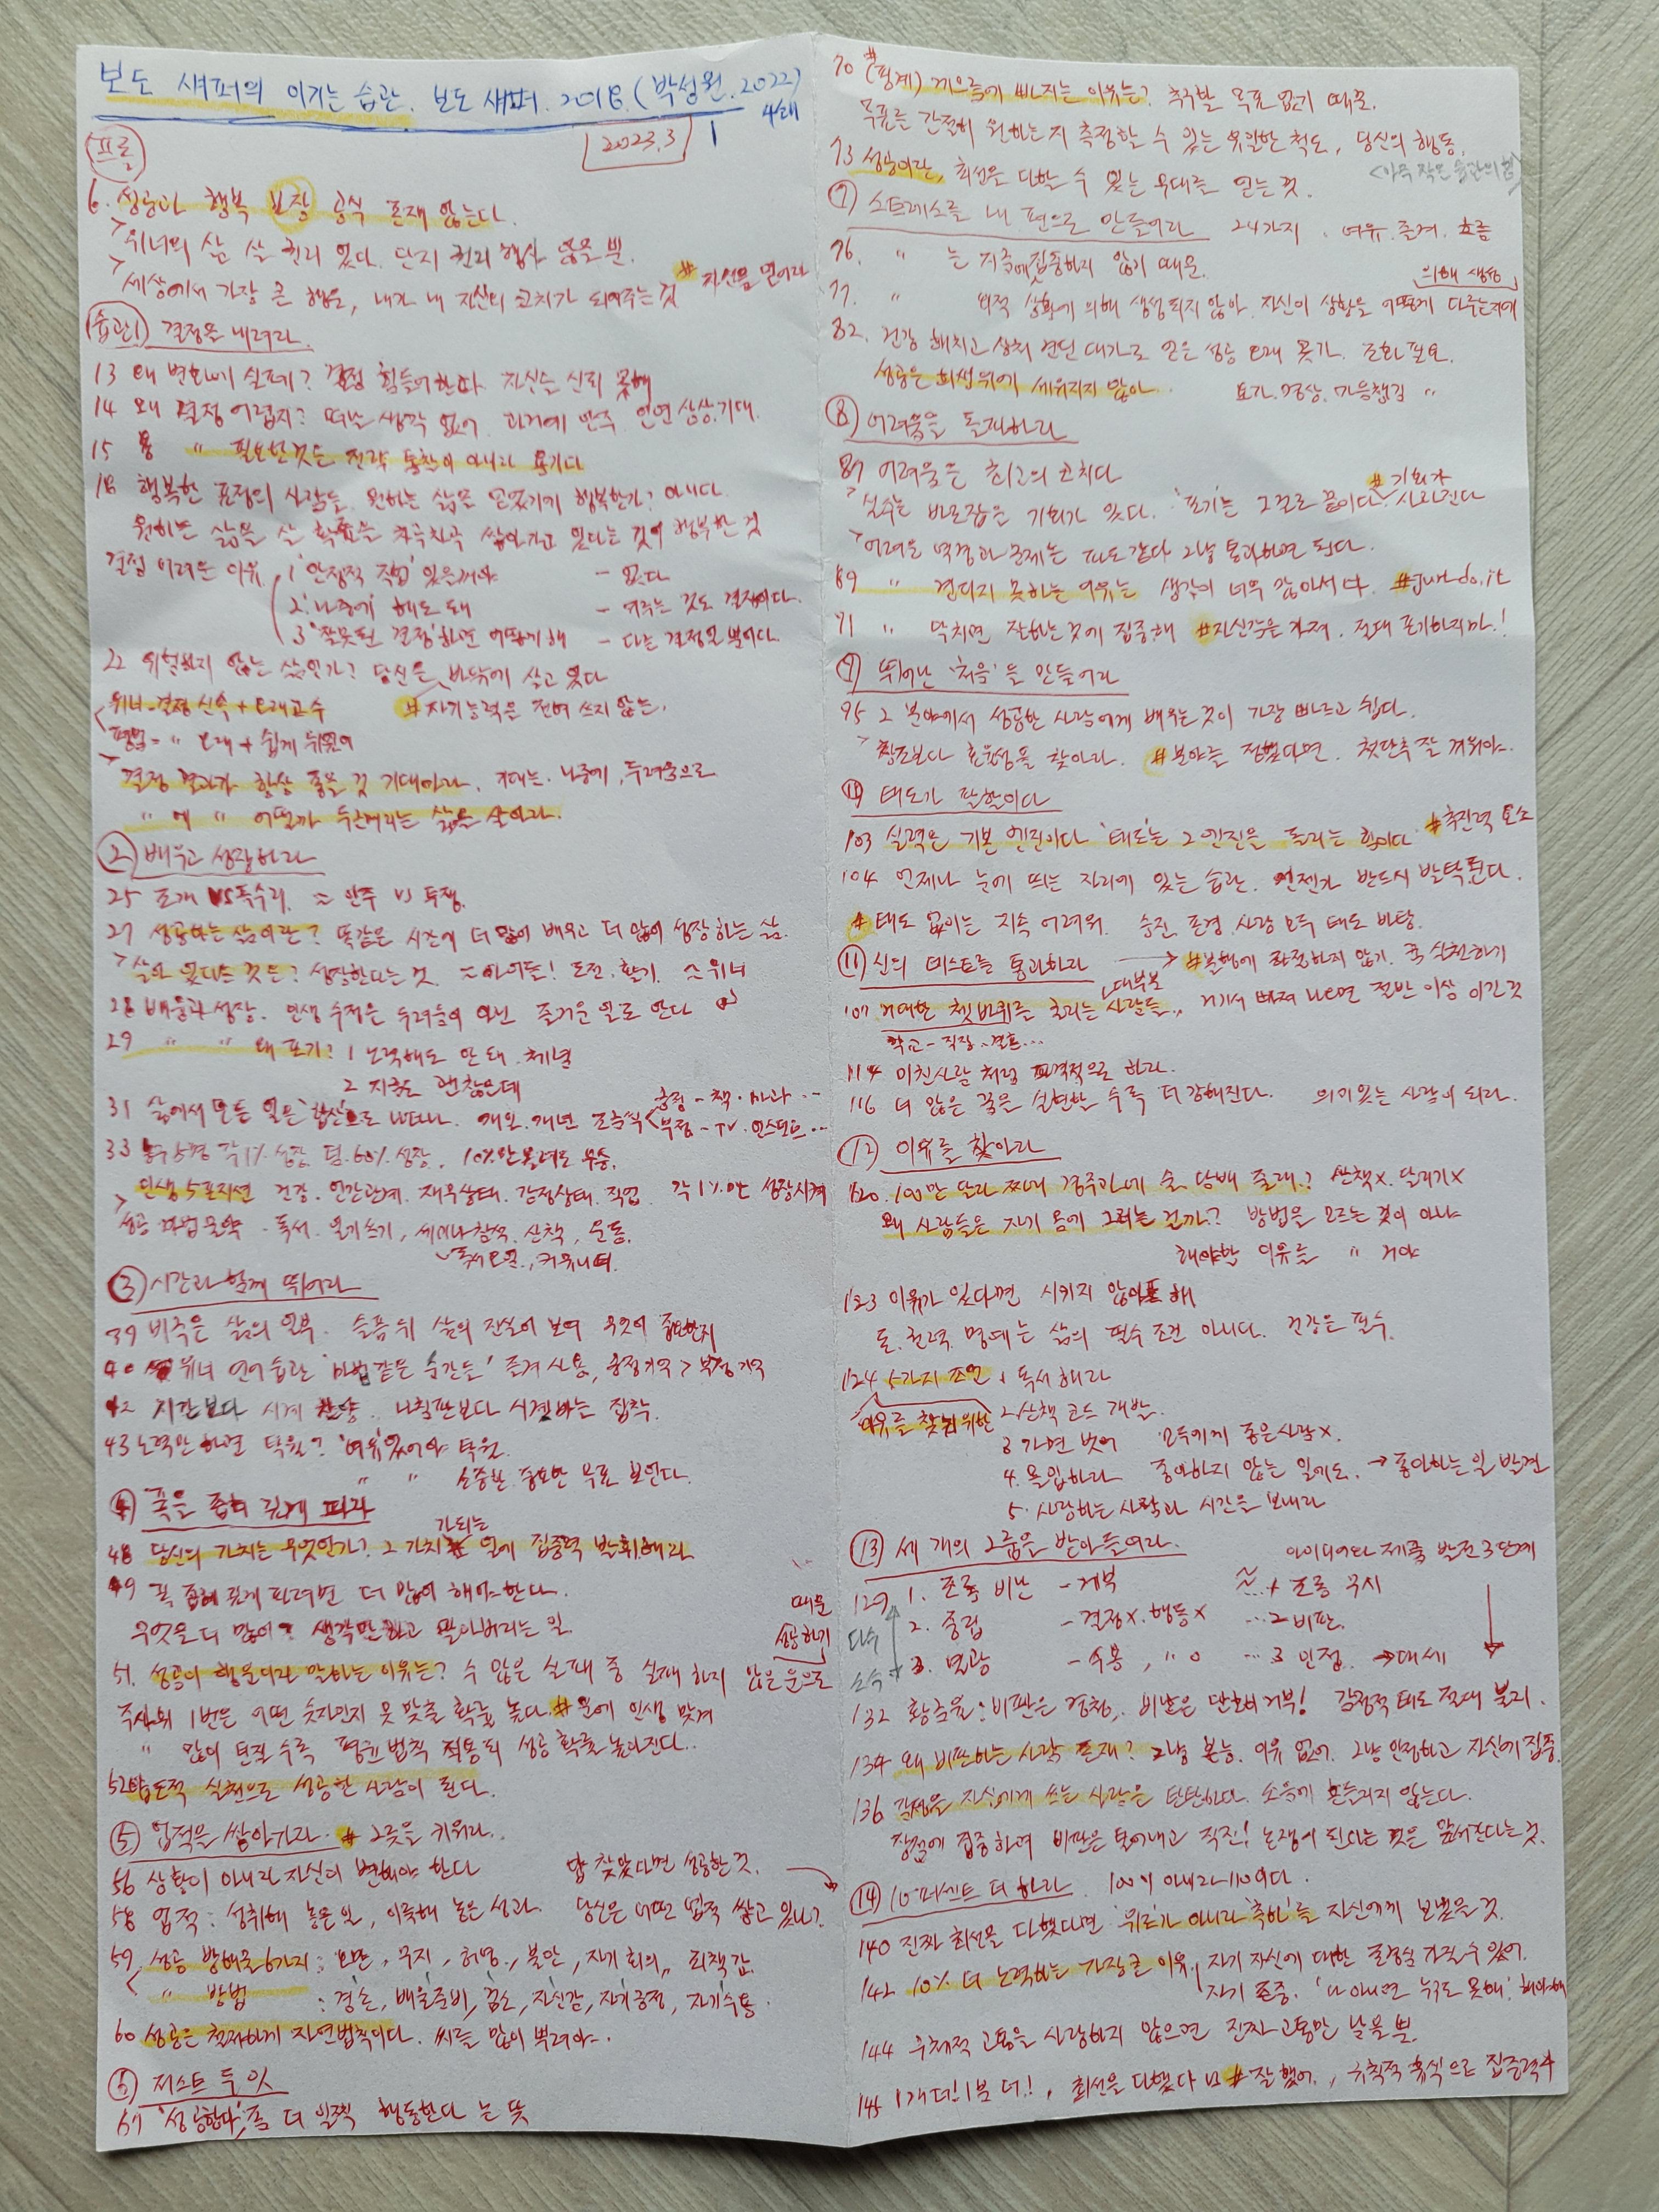 보도 섀퍼의 이기는 습관. 보도 섀퍼. 2018. (박성원. 2022)
4쇄
2023.3 1
프롤
6. 성공과 행복 보장 공식 존재 않는다.
> 위너의 삶 살 권리 있다. 단지 권리 행사 않을 뿐.
> 세상에서 가장 큰 행운, 내가 내 자신의 코치가 되어주는 것 #자신을 믿어라
습관1 결정을 내려라.
13 왜 변화에 실패? 결정 힘들어한다 자신을 신뢰 못해
14 왜 결정 어렵지? 떠날 생각 없어. 과거에 안주. 인연 상상.기대.
15 〃 필요한것은 전략 통찰이 아니라 용기다
18 행복한 표정의 사람들. 원하는 삶을 얻었기에 행복한가? 아니다.
원하는 삶을 살 확률을 차곡차곡 쌓아가고 있다는 것이 행복한 것
결정 어려운 이유 1 '안정적 직업' 있을거야 - 없다
2 '나중에' 해도 돼 - 미루는 것도 결정이다.
3 '잘못된 결정'하면 어떻게 해 - 다른 결정일 뿐이다.
22 위험하지 않는 삶인가? 당신은 바닥에 살고 있다
위너-결정 신속 + 오래고수 #자기능력은 전혀 쓰지 않는.
평범= 〃 오래 + 쉽게 뒤집어
> 결정 결과가 항상 좋을 것 기대마라. 기대는. 나중에, 두려움으로
〃 에 〃 어떨까 두근거리는 삶을 살아라.
② 배우고 성장하라
25 조개 VS 독수리. ≈ 안주 VS 투쟁.
27 성공하는 삶이란? 똑같은 시간에 더 많이 배우고 더 많이 성장하는 삶.
> 살아 있다는 것은? 성장한다는 것. ≈아이들! 도전.활기. ≈위너
28 배움과 성장. 인생 수정은 두려움이 아닌 즐거운 일로 안다
29 〃 〃 왜 포기? 1 노력해도 안 돼. 체념
2 지금도 괜찮은데
31 삶에서 모든 일은 '합산'으로 나타나. 긍정 - 책. 사과...
부정 - TV. 인스턴트...
33 각 1% 성장 팀.60% 성장. 10%만 올려도 우승.
인생 5포지션 건강. 인간관계. 재무상태. 감정상태. 직업. 각 1%만 성장시켜
> 성공 마법물약. 독서. 일기쓰기, 세미나 참석. 산책, 운동.
독서모임, 커뮤니티.
③ 시간과 함께 뛰어라
39 비극은 삶의 일부. 슬픔 뒤 삶의 진실이 보여 무엇이 중요한지
40 위너 언어습관 '마법같은 순간들' 즐겨 사용, 긍정기억 > 부정 기억
42 시간보다 시계 찬양. 나침판보다 시계바늘 집착.
43 노력만 하면 탁월? '여유'있어야 탁월.
〃 〃 소중한. 중요한 목표 보인다.
④ 폭을 좁혀 깊게 파라
48 당신의 가치는 무엇인가? 그 가치가 되는 일에 집중력 발휘해라
49 폭 좁혀 깊게 파려면 더 많이 해야한다.
무엇을 더 많이? 생각만하고 말아버리는 일.
51. 성공이 행운이라 말하는 이유는? 수 많은 실패 중 실패 하지 않은 운으로 성공하기 때문
주사위 1번은 어떤 숫자인지 못 맞출 확률 높다. #운에 인생 맡겨
〃 많이 던질 수록 평균 법칙 적용되 성공 확률 높아진다..
52 압도적 실천으로 성공한 사람이 된다.
⑤ 업적을 쌓아가라. #그릇을 키워라.
56 상황이 아니라 자신이 변해야 한다 답 찾았다면 성공한 것.
58 업적: 성취해 놓은 일, 이룩해 놓은 성과. 당신은 어떤 업적 쌓고 있나?
59. 성공 방해물 6가지: 오만, 무지, 허영, 불안, 자기 회의, 죄책감.
〃 방법 : 겸손, 배울준비, 검소, 자신감, 자기긍정, 자기수용.
60 성공은 철저하게 자연법칙이다. 씨를 많이 뿌려야.
⑥ 저스트 두 잇
67 '성공한다' 좀 더 일찍 행동한다 는 뜻
70 #(핑계) 게으름에 빠지는 이유는? 촉구할 목표 없기 때문.
목표를 간절히 원하는 지 측정할 수 있는 유일한 척도, 당신의 행동.
73 성공이란, 최선을 다할 수 있는 무대를 얻는 것. <아주 작은 습관의 힘>
⑦ 스트레스를 내 편으로 만들어라 24가지. 여유. 즐겨. 흐름
76. 〃 는 지금에 집중하지 않기 때문.
77. 〃 외적 상황에 의해 생성되지 않아. 자신이 상황을 어떻게 다루는지에 의해 생성
82. 건강 해치고 상처 견딘 대가로 얻은 성공 오래 못가. 조화 필요.
성공은 희생위에 세워지지 않아. 요가. 명상. 마음챙김 〃
⑧ 어려움을 돌파하라
87 어려움은 최고의 코치다
> 실수는 바로잡을 기회가 있다. '포기'는 그걸로 끝이다. #기회가 사라진다
> 어려운 역경과 문제는 파도 같다 그냥 통과하면 된다.
89 〃 견디지 못하는 이유는 생각이 너무 많아서다. #Just.do.it
91 〃 닥치면 잘하는 것에 집중해 #자신감을 가져. 절대 포기하지마.!
⑨ 뛰어난 '처음'을 만들어라
95 그 분야에서 성공한 사람에게 배우는 것이 가장 빠르고 쉽다.
> 창조보다 효율성을 찾아라. #분야를 정했다면. 첫단추 잘 꿰워야.
⑩ 태도가 팔할이다
103 실력은 기본 엔진이다 '태도'는 그 엔진을 돌리는 힘이다. #추진력 요소
104 언제나 눈에 띄는 자리에 있는 습관. 언젠가 반드시 발탁된다.
#태도 없이는 지속 어려워. 승진. 존경. 사랑 모두 태도 바탕.
⑪ 신의 테스트를 통과하라 → #불행에 좌절하지 않기. 꼭 실천하기
107 거대한 쳇바퀴를 돌리는 대부분 사람들., 거기서 빠져 나오면 절반 이상 이긴 것
학교 - 직장. 결혼...
114 미친사람 처럼 파격적으로 하라.
116 더 많은 꿈을 실현할 수록 더 강해진다. 의미있는 사람이 되라.
⑫ 이유를 찾아라
120. 100만 달러 짜리 경주마에 술. 담배 줄래? 산책x. 달리기x
왜 사람들은 자기 몸에 그러는 건가? 방법을 모르는 것이 아냐
해야할 이유를 〃 거야
123 이유가 있다면 시키지 않아도 해
돈. 권력. 명예는 삶의 필수 조건 아니다. 건강은 필수.
124 5가지 조언 1 독서해라
이유를 찾기위한 2. 산책 코드 개발.
3 가면 벗어 모두에게 좋은사람x.
4. 몰입하라 좋아하지 않는 일에도. → 좋아하는 일 발견
5. 사랑하는 사람과 시간을 보내라
⑬ 세 개의 그룹을 받아들여라. 아이디어와 제품 발전 3단계
129 1. 조롱 비난 - 거부 ≈ 1 조롱 무시
다수 2. 중립 - 결정x. 행동x ...2 비판.
소수 3. 열광 - 수용, 〃 o ...3 인정. → 대세
132 황금율: 비판은 경청, 비난은 단호히 거부! 감정적 태도 절대 불리.
134 왜 비판하는 사람 존재? 그냥 본능. 이유 없어. 그냥 인정하고 자신에 집중.
136 감정을 자신에게 쓰는 사람은 탄탄하다. 소음에 흔들리지 않는다.
장점에 집중하여 비판은 털어내고 직진! 논쟁이 된다는 것은 앞서간다는 것.
⑭ 10퍼센트 더 하라. 100이 아니라 110이다.
140 진짜 최선을 다했다면 '위로'가 아니라 '축하'를 자신에게 보냈을 것.
142 10% 더 노력하는 가장큰 이유, 자기 자신에 대한 존경심 가질 수 있어.
자기 존중. '나 아니면 누구도 못해'. 해야해
144 구체적 고통을 사랑하지 않으면 진짜 고통만 남을 뿐.
145 1개 더! 1분 더!, 최선을 다했다 #잘했어., 규칙적 휴식으로 집중력↑